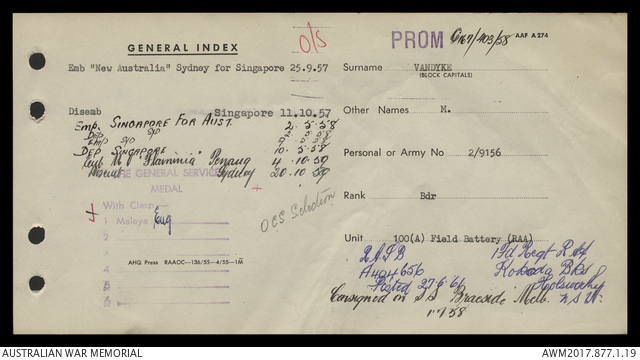 GENERAL INDEX
O/S
PROM
/403/58 AAF A274
Emb "New Australia" Sydney for Singapore 25.9.57
Surname VANDYKE
(BLOCK CAPITALS)
Disemb Singapore 11.10.57
Other Names M.
Emp. SINGAPORE FOR AUST. 2.5.58
DEP SINGAPORE 10.5.58
Personal or Army No 2/9156
Emb M V "Flaminia" Penang 4.10.59
Sydney 20.10.59
THE GENERAL SERVICE
MEDAL
Rank Bdr
With Clasp
1 Malaya Eng
2
3
4
5
6
OCS Selection
Unit 100(A) Field Battery (RAA)
AHQ Press RAAOC—136/55—4/55—1M
A404656
Posted 27.6.61
Holsworthy
N.S.W.
Consigned on S.S Braeside Melb.
AUSTRALIAN WAR MEMORIAL
AWM2017.877.1.19